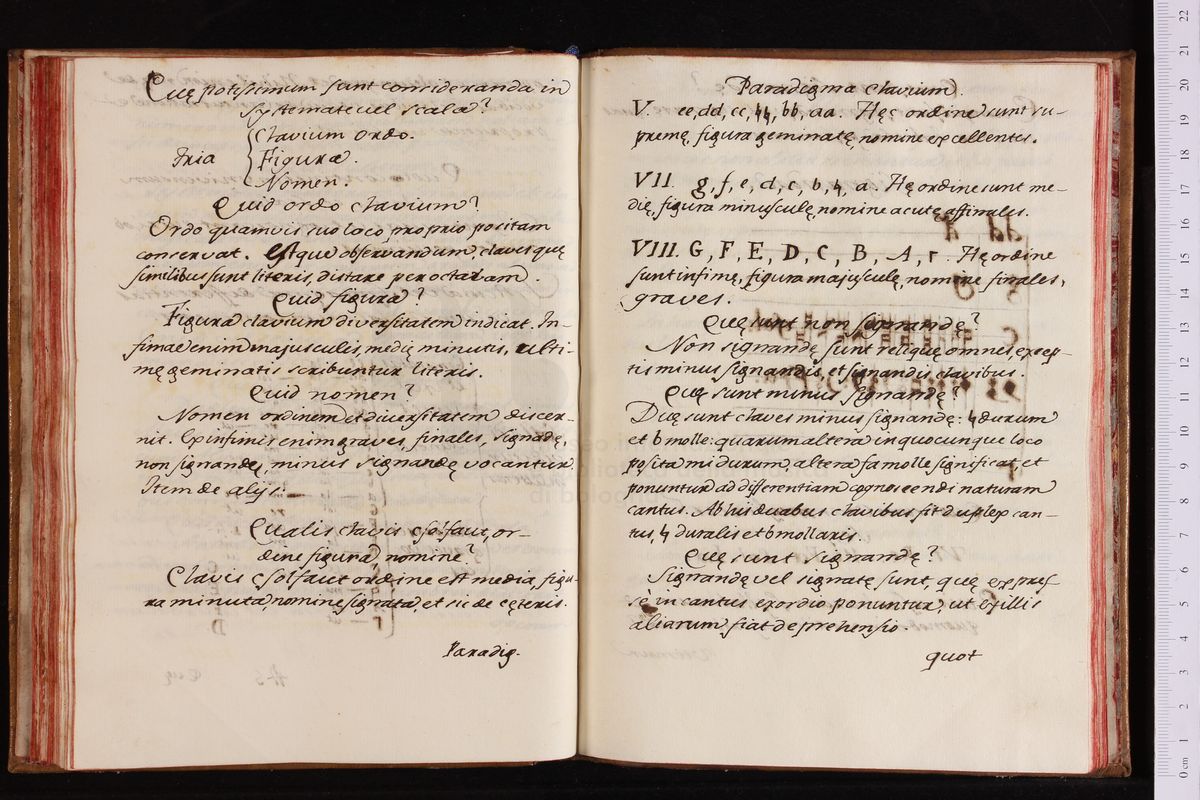 Quę potissimum sunt consideranda in
systemate vel scala?
Clavium ordo.
Tria Figura.
Nomen.
Quid ordo clavium?
Ordo quamvis suo loco, proprio positam
conservat. Estque observandum, claves quę
similibus sunt literis, distare per octavam.
Quid figura?
Figura clavium diversitatem indicat. In-
fimae enim majusculis, medię minutis, ulti-
mę geminatis scribuntur literis.
Quid nomen?
Nomen ordinem et diversitatem discer
nit. Ex infimis enim graves, finales, signadę,
non signandę, minus signandę vocantur.
Item de alijs.
Qualis clavis csolfaut, or-
dine figura, nomine?
Clavis csolfaut ordine est media, figu-
ra minuta nomine signata, et sic de cęteris.
Paradig.
Paradigma clavium.
V. ee, dd, cc, ♮♮, bb, aa. Hęc ordine sunt su-
premę, figura geminatę, nomine excellentes.
VII. g, f, e, d, c, b, ♮, a. Hę ordine sunt me-
dię, figura minusculę, nomine acutę affinales.
VIII. G, F, E, D, C, B, A, Γ. Hę ordine
sunt infimę, figura majusculę, nomine finales,
graves.
Quę sunt non signandę?
Non signandę sunt reliquę omnes, excep-
tis minus signandis et signandis clavibus.
Quę sunt minus signandę?
Duę sunt claves minus signandę: ♮ durum
et b molle: quarum altera in quocunque loco
posita mi durum, altera fa molle significat, et
ponuntur ad differentiam cognoscendi naturam
cantus. Ab his duabus clavibus fit duplex can-
tus, ♮ duralis et b mollaris.
Quę sunt signandę?
Signandę vel signatę sunt, quę expres-
sè in cantus exordio ponuntur, ut ex illis
aliarum fiat deprehensio.
quot
0 cm 1 2 3 4 5 6 7 8 9 10 11 12 13 14 15 16 17 18 19 20 21 22